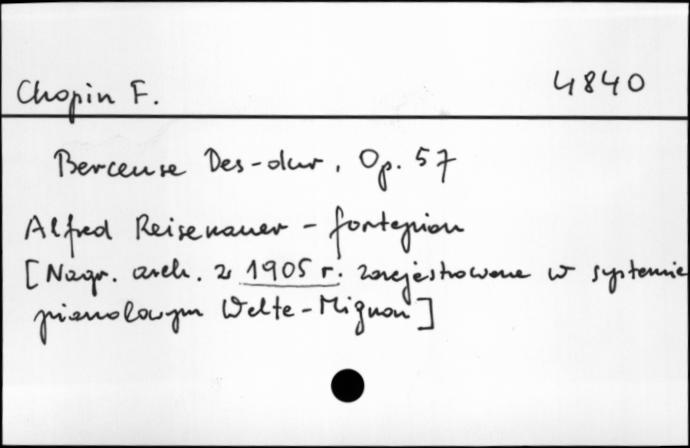 Chopin F. 4840
Berceuse Des-dur, Op. 57
Alfred Reisenauer - fortepian
[Nagr. arch. z 1905 r. zarejestrowane w systemie
pianolowym Welte-Mignon]